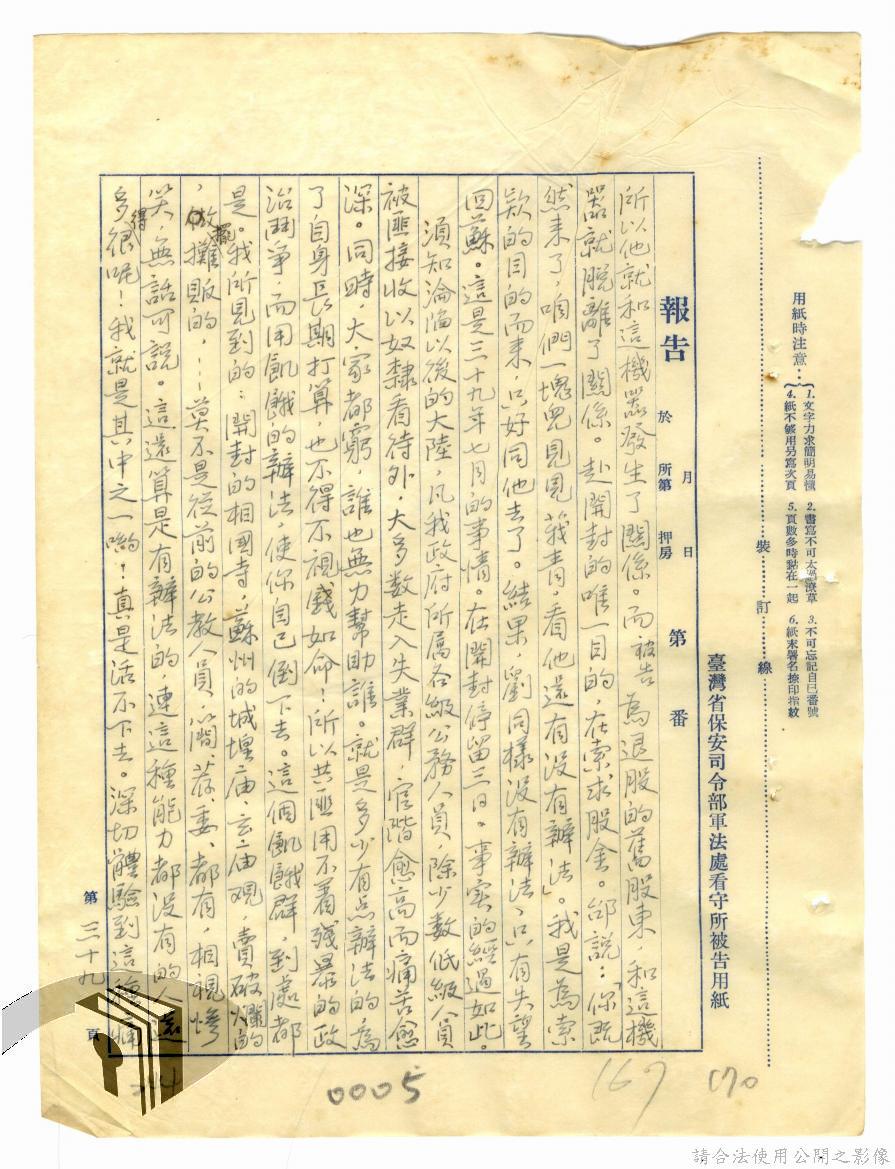 用紙時注意…
1.文字力求簡明易懂 2.書寫不可太過潦草 3.不可忘記自己番號
4.紙不够用另寫次頁 5.頁數多時黏在一起 6.紙末署名捺印指紋
裝 訂 線
臺灣省保安司令部軍法處看守所被告用紙
報告 於 月 日 所第 押房 第 番
所以他就和這機器發生了關係。而被告為退股的舊股東，和這機
器就脫離了關係。赴開封的唯一目的，在索求股金。邰說：「你既
然来了，咱們一塊兒見見莪青，看他還有没有辦法」。我是為索
欵的目的而来，只好同他去了。結果，劉同樣没有辦法，只有失望
回蘇。這是三十九年七月的事情。在開封停留三日。事实的經過如此。
須知淪陷以後的大陸，凡我政府所属各級公務人員，除少数低級人員
被匪接收以奴隸看待外，大多数走入失業群，官階愈高而痛苦愈
深。同時，大家都窮，誰也無力幫助誰。就是多少有点辦法的，為
了自身長期打算，也不得不視錢如命！所以共匪用不着殘暴的政
治鬥争，而用飢餓的辦法，使你自己倒下去。這個飢餓群，到處都
是。我所見到的：開封的相國寺，蘇州的城堭庙、玄庙观，賣破爛的
，做擺攤販的，……莫不是從前的公教人員，簡、荐、委、都有，相視惨
笑，無話可説。這還算是有辦法的，連這種能力都没有的人還
多得很呢！我就是其中之一喲！真是活不下去。深切體驗到這種痛
第 三十九 頁
244
0005
167
170
請合法使用公開之影像